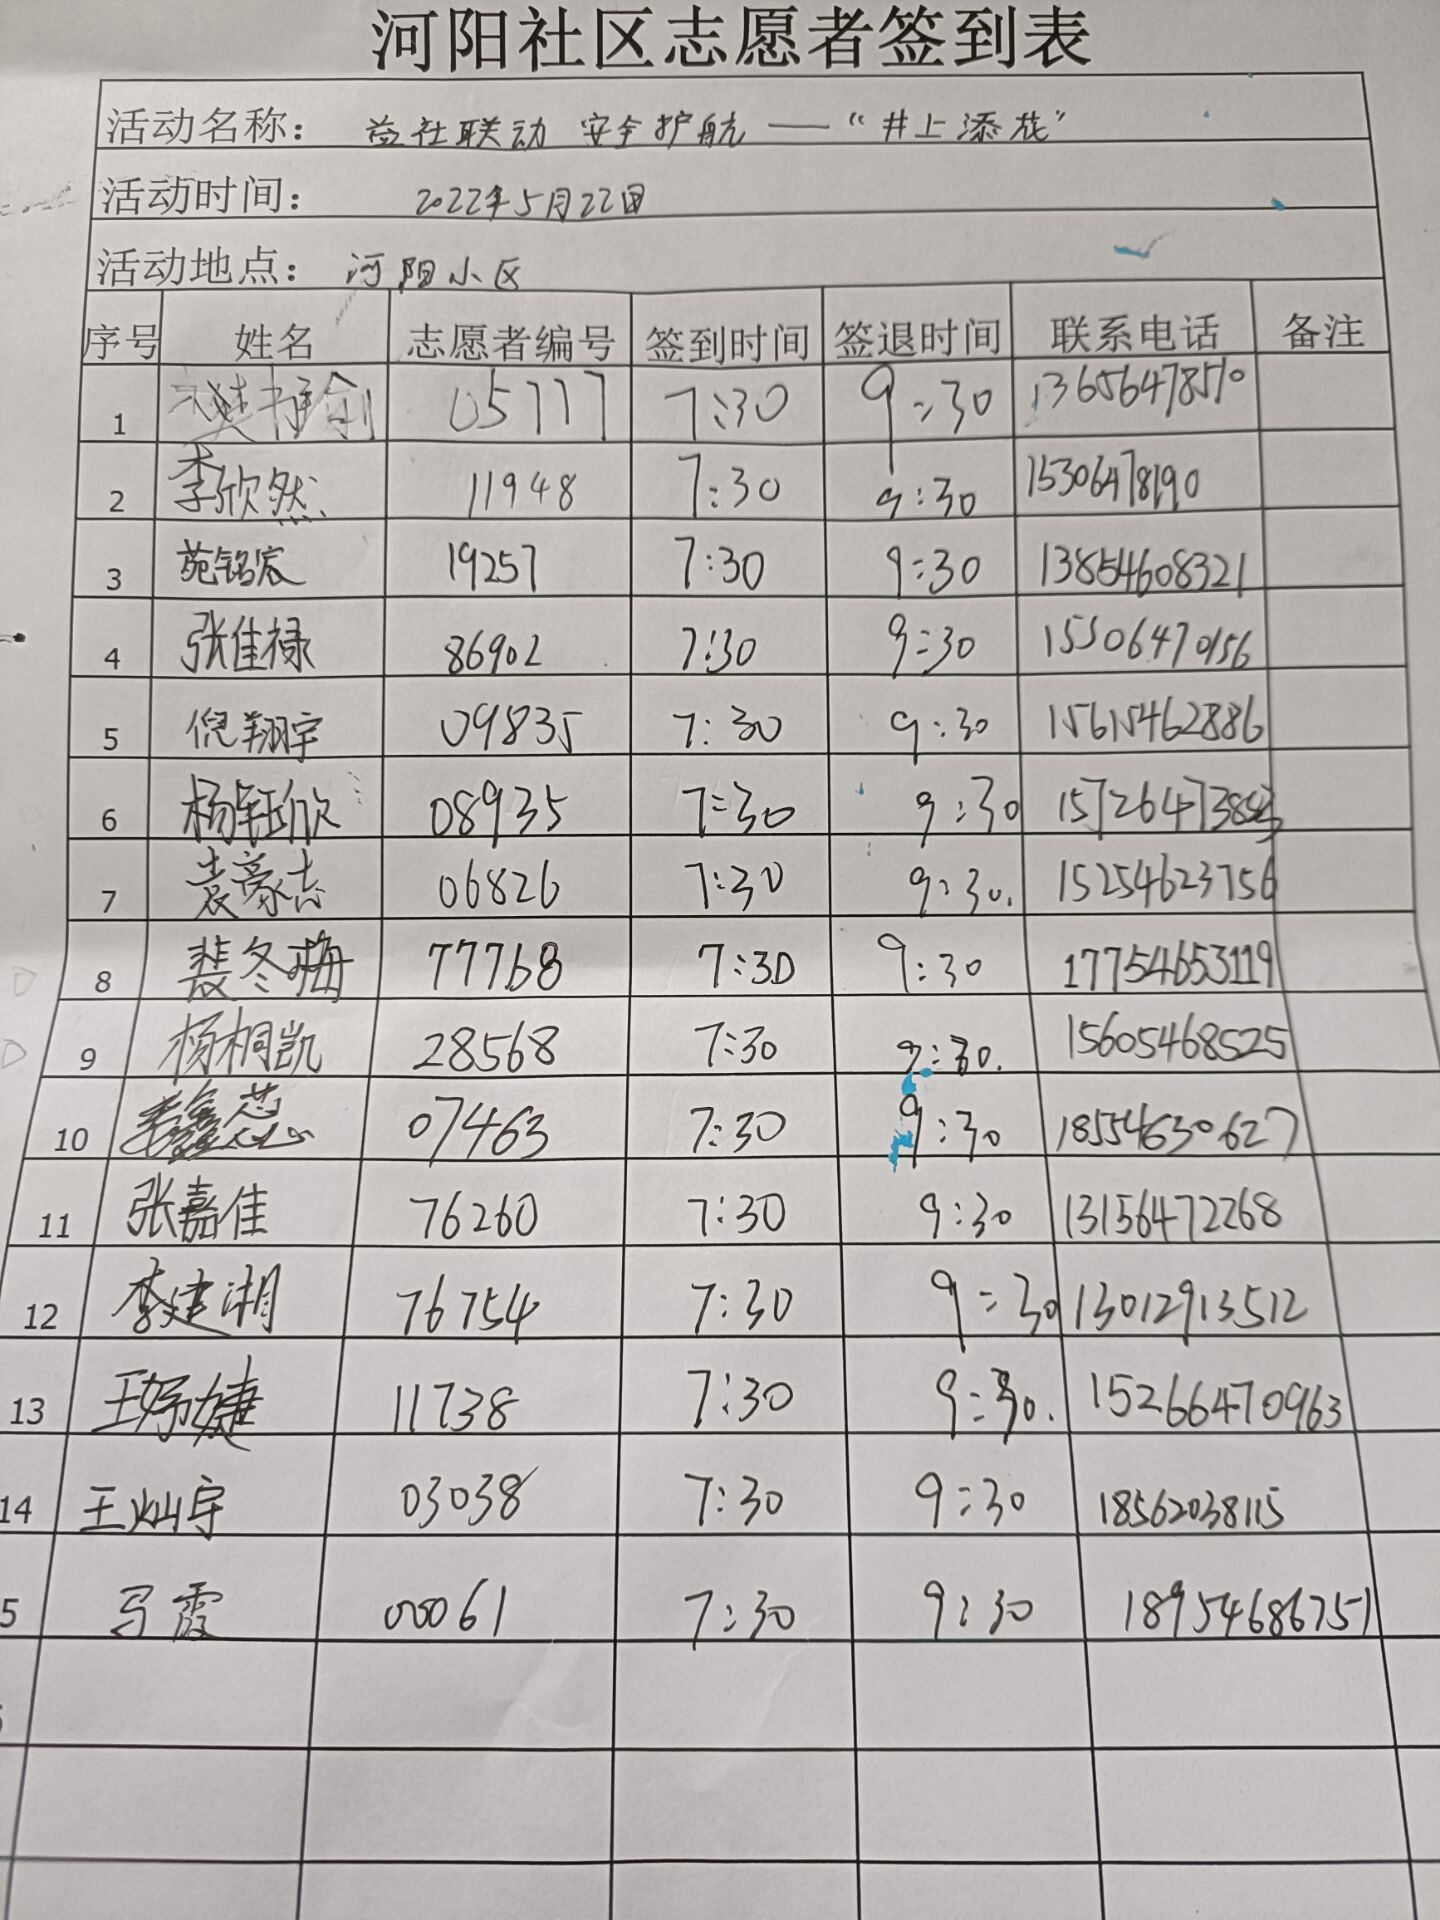 河阳社区志愿者签到表
活动名称： 益社联动 安全护航——“井上添花”
活动时间： 2022年5月22日
活动地点： 河阳小区
序号 姓名 志愿者编号 签到时间 签退时间 联系电话 备注
1 05777 7:30 9:30 13656478570
2 李欣然 11948 7:30 9:30 15306478190
3 苑铭宸 19257 7:30 9:30 13854608321
4 张佳禄 86902 7:30 9:30 15306470156
5 倪翔宇 09835 7:30 9:30 15615462886
6 杨钰欣 08935 7:30 9:30
7 袁豪志 06826 7:30 9:30. 15254623756
8 裴冬梅 77768 7:30 9:30 17754653119
9 杨桐凯 28568 7:30 9:30. 15605468525
10 07463 7:30 9:30 18554630627
11 张嘉佳 76260 7:30 9:30 13156472268
12 李建湖 76754 7:30 9:30 13012913512
13 王婕 11738 7:30 9:30. 15266470963
14 王灿宇 03038 7:30 9:30 18562038115
5 马霞 00061 7:30 9:30 18954686751